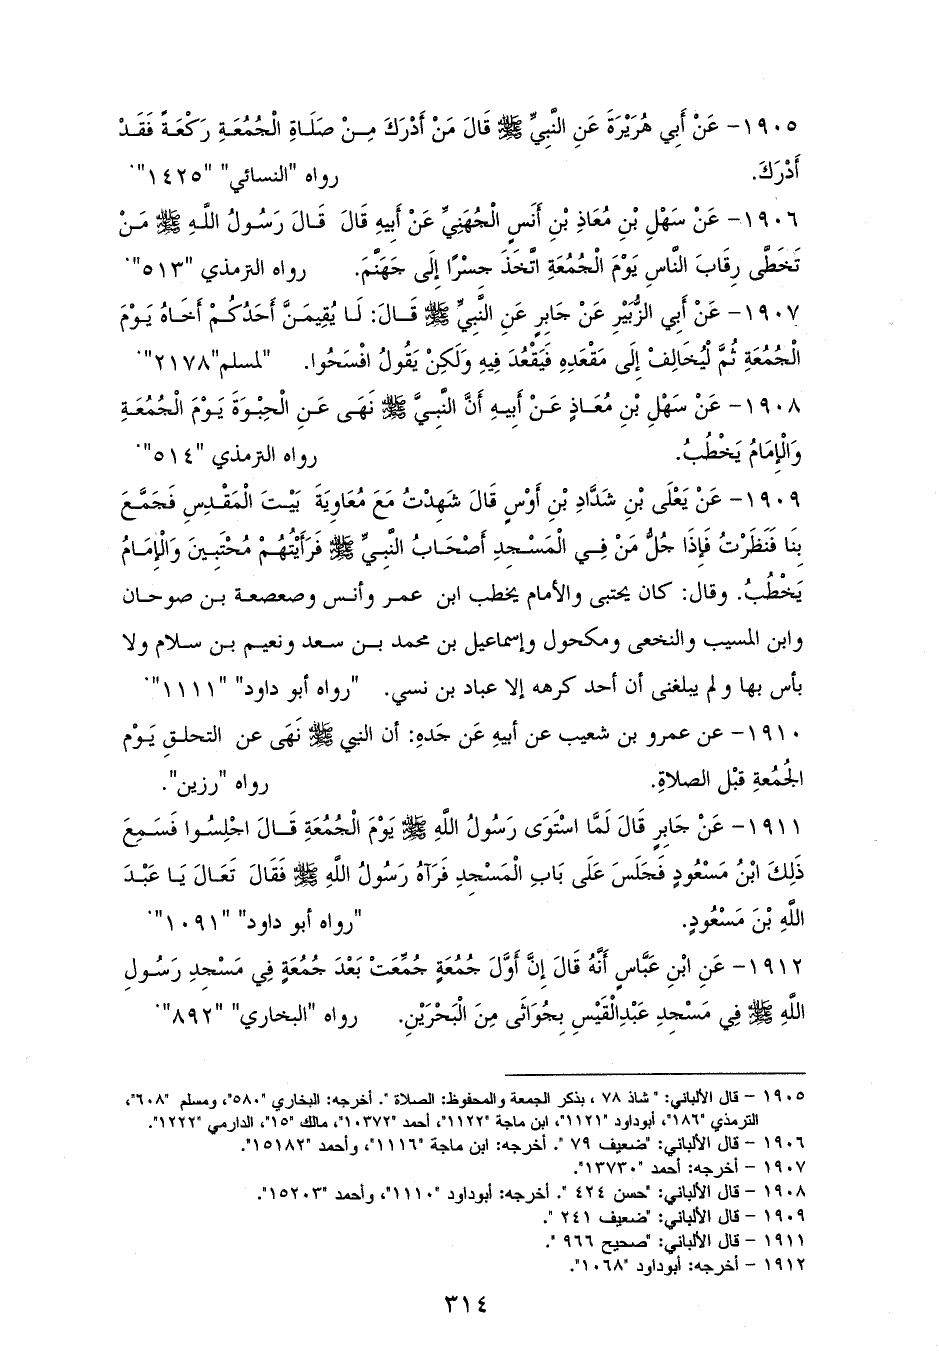 ١٩٠٥- عَنْ أَبِي هُرَيْرَةَ عَنِ النَّبِيِّ ﷺ قَالَ مَنْ أَدْرَكَ مِـنْ صَلَاةِ الْجُمُعَةِ رَكْعَةً فَقَـدْ
أَدْرَكَ. رواه "النسائي" "١٤٢٥".
١٩٠٦- عَنْ سَهْلِ بْنِ مُعَاذِ بْنِ أَنَسٍ الْجُهَنِيِّ عَنْ أَبِيهِ قَالَ قَـالَ رَسُـولُ اللَّـهِ ﷺ مَـنْ
تَخَطَّى رِقَابَ النَّاسِ يَوْمَ الْجُمُعَةِ اتَّخَذَ جِسْرًا إِلَى جَهَنَّمَ. رواه الترمذي "٥١٣".
١٩٠٧- عَنْ أَبِي الزُّبَيْرِ عَنْ جَابِرٍ عَنِ النَّبِيِّ ﷺ قَـالَ: لَـا يُقِيمَـنَّ أَحَدُكُـمْ أَخَـاهُ يَـوْمَ
الْجُمُعَةِ ثُمَّ لْيُخَالِفْ إِلَى مَقْعَدِهِ فَيَقْعُدَ فِيهِ وَلَكِنْ يَقُولُ افْسَحُوا. "لمسلم"٢١٧٨".
١٩٠٨- عَنْ سَهْلِ بْنِ مُعَـاذٍ عَـنْ أَبِيـهِ أَنَّ النَّبِيَّ ﷺ نَهَـى عَـنِ الْحِبْـوَةِ يَـوْمَ الْجُمُعَـةِ
وَالْإِمَامُ يَخْطُبُ. رواه الترمذي "٥١٤".
١٩٠٩- عَنْ يَعْلَى بْنِ شَدَّادِ بْنِ أَوْسٍ قَالَ شَهِدْتُ مَعَ مُعَاوِيَةَ بَيْـتَ الْمَقْـدِسِ فَجَمَّـعَ
بِنَا فَنَظَرْتُ فَإِذَا جُلُّ مَنْ فِـي الْمَسْـجِدِ أَصْحَـابُ النَّبِـيِّ ﷺ فَرَأَيْتُهُـمْ مُحْتَبِـينَ وَالْإِمَـامُ
يَخْطُبُ. وقال: كان يحتبى والأمام يخطب ابن عمـر وأنـس وصعصعـة بـن صوحـان
وابن المسيب والنخعى ومكحول وإسماعيل بن محمد بـن سعد ونعيـم بـن سـلام ولا
بأس بها و لم يبلغنى أن أحد كرهه إلا عباد بن نسي. "رواه أبو داود" "١١١١".
١٩١٠- عن عمرو بن شعيب عن أبيهِ عَن جَدهِ: أن النبي ﷺ نَهَى عن التحلـقِ يَـوْم
الجُمُعةِ قبْل الصلاةِ. رواه "رزين".
١٩١١- عَنْ جَابِرٍ قَالَ لَمَّا اسْتَوَى رَسُولُ اللَّهِ ﷺ يَوْمَ الْجُمُعَةِ قَـالَ اجْلِسُـوا فَسَـمِعَ
ذَلِكَ ابْنُ مَسْعُودٍ فَجَلَسَ عَلَى بَابِ الْمَسْجِدِ فَرَآهُ رَسُولُ اللَّهِ ﷺ فَقَالَ تَعَالَ يَـا عَبْـدَ
اللَّهِ بْنَ مَسْعُودٍ. "رواه أبو داود" "١٠٩١".
١٩١٢- عَنِ ابْنِ عَبَّاسٍ أَنَّهُ قَالَ إِنَّ أَوَّلَ جُمُعَةٍ جُمِّعَتْ بَعْدَ جُمُعَةٍ فِي مَسْـجِدِ رَسُـولِ
اللَّهِ ﷺ فِي مَسْجِدِ عَبْدِالْقَيْسِ بِجُوَاثَى مِنَ الْبَحْرَيْنِ. رواه "البخاري" "٨٩٢".
١٩٠٥ - قال الألباني: "شاذ ٧٨ ، بذكر الجمعة والمحفوظ: الصلاة ". أخرجه: البخاري "٥٨٠"، ومسلم "٦٠٨"،
الترمذي "١٨٦"، أبوداود "١١٢١"، ابن ماجة "١١٢٢"، أحمد "١٠٣٧٢"، مالك "١٥"، الدارمي "١٢٢٢".
١٩٠٦ - قال الألباني: "ضعيف ٧٩ ". أخرجه: ابن ماجة "١١١٦"، وأحمد "١٥١٨٢".
١٩٠٧ - أخرجه: أحمد "١٣٧٣٠".
١٩٠٨ - قال الألباني: "حسن ٤٢٤ ". أخرجه: أبوداود "١١١٠"، وأحمد "١٥٢٠٣".
١٩٠٩ - قال الألباني: "ضعيف ٢٤١ ".
١٩١١ - قال الألباني: "صحيح ٩٦٦ ".
١٩١٢ - أخرجه: أبوداود "١٠٦٨".
٣١٤